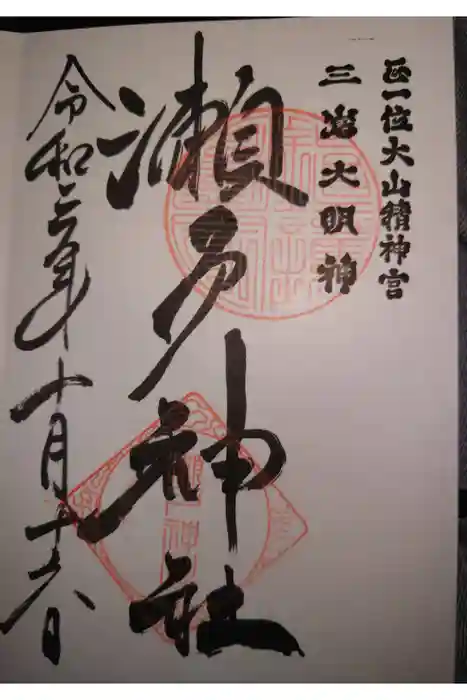 正一位大山精神宮
三岩大明神
瀬多神社
令和三年十月十六日